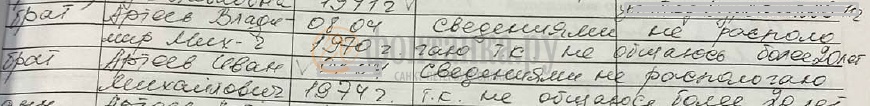 1971 г
брат Артеев Влади 08.04 сведениями не располо
мир Мих-ч 1970 г гаю т.к не общаюсь более 20 лет
брат Артеев Иван сведениями не распологаю
Михайлович 1974 г. т.к. не общаюсь более 20 лет